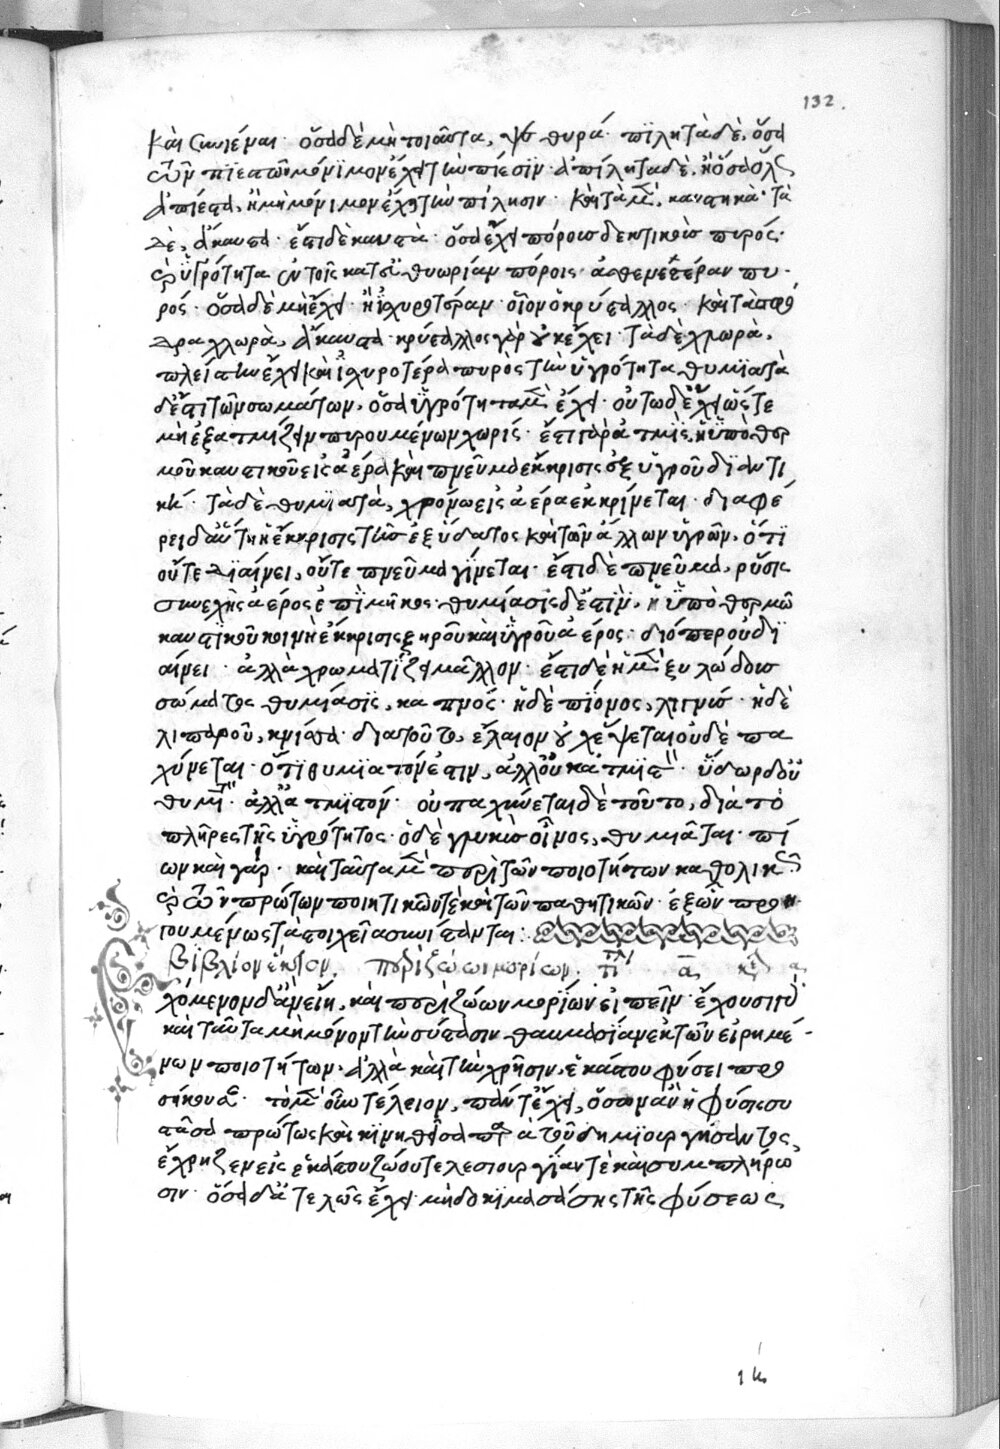 132.
καὶ συνιέναι· ὅσα δὲ μὴ τοιαῦτα, ψαθυρά· πϊλητὰ δὲ, ὅσα
τῶν πϊεστῶν μόνϊμον ἔχει τὴν πίεσϊν· ἀπίλητα δὲ, ἢ ὅσα ὅλως
ἀπίεστα, ἢ μὴ μόνιμον ἔχει τὴν πίλησιν· καὶ τὰ μὲν, καυστικὰ· τὰ
δὲ, ἄκαυστα· ἔστι δὲ καυστὰ· ὅσα ἔχει πόρους δεκτικοὺς πυρός·
ὑγρότητα ἐν τοῖς κατ' εὐθυωρίαν πόροις· ἀσθενεστέραν πυ-
ρός· ὅσα δὲ μὴ ἔχει· ἢ ἰσχυροτέραν· οἷον ὁ κρύσταλλος· καὶ τὰ σφό
δρα χλωρὰ, ἄκαυστα· κρύσταλλος γὰρ οὐκ ἔχει· τὰ δὲ χλωρὰ,
πλείστην ἔχει καὶ ἰσχυροτέρα πυρος τὴν ὑγρότητα· θυμϊατὰ
δ' ἔστι τῶν σωμάτων, ὅσα ὑγρότητα μὲν ἔχει· οὕτω δ' ἔχει ὥστε
μὴ ἐξατμίζειν πυρουμένων χωρίς· ἔστι γὰρ ἀτμὶς, ἡ ὑπὸ θερ
μοῦ καυστικοῦ εἰς ἀέρα καὶ πνεῦμα ἔκκρισις ἐξ ὑγροῦ δϊαντι
κή· τὰ δὲ θυμϊατὰ, χρόνω εἰς ἀέρα ἐκκρίνεται· διαφέ
ρει δ' αὕτη ἡ ἔκκρισις τῆς ἐξ ὕδατος καὶ τῶν ἄλλων ὑγρῶν, ὅτϊ
οὔτε δϊαίνει, οὔτε πνεῦμα γίνεται· ἔστι δὲ πνεῦμα, ῥύσις
συνεχὴς ἀέρος ἐπὶ μῆκος· θυμίασϊς δ' ἐστὶν, ἡ ὑπὸ θερμοῦ
καυστϊκοῦ κοινὴ ἔκκρισις ξηροῦ καὶ ὑγροῦ ἀέρος· διόπερ οὐ δϊ
αίνει· ἀλλὰ χρωματίζει μᾶλλον· ἔστι δὲ ἡ μὲν ξυλώδους
σώματος θυμίασϊς, καπνός· ἡ δὲ πίονος, λιγνύς· ἡ δὲ
λιπαροῦ, κνίσσα· διὰ τοῦτο, ἔλαιον οὐχ ἕψεται οὐδὲ πα
χύνεται· ὅτϊ θυμϊατόν ἐστιν, ἀλλ' οὐκ ἀτμϊστ· ὕδωρ δ' οὐ
θυμιατ· ἀλλ' ἀτμϊστόν· οὐ παχύνεται δὲ τοῦτο, διὰ τὸ
πλῆρες τῆς ὑγρότητος· ὁ δὲ γλυκὺς οἶνος, θυμιᾶται· πί
ων καὶ γάρ· καὶ ταῦτα μὲν περὶ τῶν ποιοτήτων καθολικῶς
τῶν πρώτων ποιητικῶν τὲ καὶ τῶν παθητικῶν· ἐξ ὧν προη
γουμένως τὰ στοιχεῖα συνίστανται:
βιβλίον ἕκτον. περὶ ζώων μορίων.
χόμενον δ' ἂν εἴη, καὶ περὶ ζώων μορίων εἰπεῖν· ἔχουσι γὰρ
καὶ ταῦτα μὴ μόνον τὴν σύστασιν θαυμασίαν ἐκ τῶν εἰρημέ-
νων ποιοτήτων· ἀλλὰ καὶ τὴν χρῆσιν, ἑκάστου φύσει προ
σήκουσαν· τὸ μὲν οὖν τέλειον, πάντ' ἔχει, ὅσων ἂν ἡ φύσις συ
στᾶσα πρώτως καὶ κινηθεῖσα παρὰ τοῦ δημϊουργήσαντος,
ἔχρηζεν εἰς ἑκάστου ζώου τελεσιουργίαν τὲ καὶ συμπλήρω
σιν· ὅσα δ' ἀτελῶς ἔχει μὴ δοκιμασάσης τῆς φύσεως